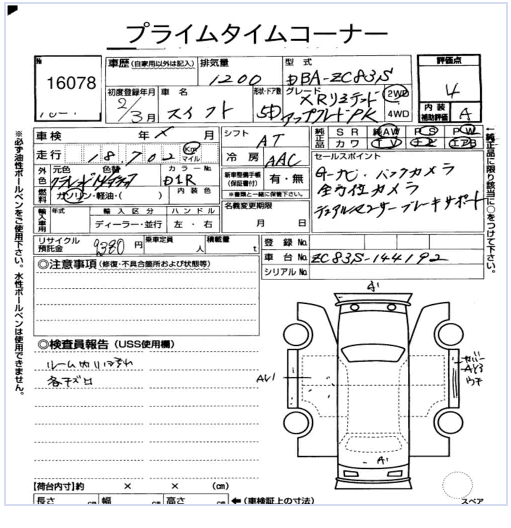 プライムタイムコーナー
№ 16078
車歴 (自家用以外は記入)
排気量 1200
型式 DBA-ZC83S
評価点 4
内装補助評価 A
初度登録年月 2/3月
車名 スイフト
形状・ドア数 5D
グレード XRリミテッド
アップグレードPK
2WD
4WD
車検 年 × 月
走行 18,702 Km マイル
シフト AT
冷房 AAC
純正品 SR 純AW PS PW
カワ TV
外色 元色 色替 カラー№ D1R
ガソリン・軽油・( ) 内装色
新車整備手帳 (保証書付) 有・無
※書類と一緒に保管下さい。
セールスポイント
Gナビ・バックカメラ
全方位カメラ
デュアルセンサーブレーキサポート
輸入車用 年式 輸入区分 ハンドル
ディーラー・並行 左・右
名義変更期限
月 日
リサイクル預託金 9380円
乗車定員 人
積載量 t
登録№
車台№ ZC83S-144192
シリアル№
◎注意事項 (修復・不具合箇所および状態等)
◎検査員報告 (USS使用欄)
ルーム内リヨゴレ
各キズロ
A1
AU1
カバー
AY3
ウチ
A1
【荷台内寸】約 × × (cm)
長さ cm 幅 cm 高さ cm ←(車検証上の寸法)
スペア
※必ず油性ボールペンをご使用下さい。水性ボールペンは使用できません。
↑純正品に限り該当に○をつけて下さい。